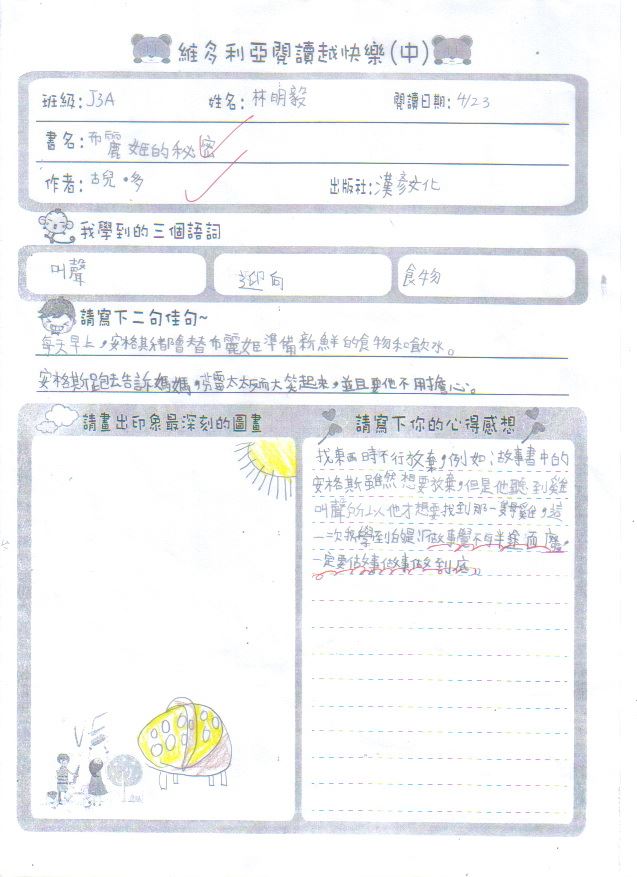 維多利亞閱讀越快樂(中)
班級:J3A 姓名:林明毅 閱讀日期:4/23
書名:布麗姬的秘密
作者:古兒·多 出版社:漢彥文化
我學到的三個語詞
叫聲 迎向 食物
請寫下二句佳句~
每天早上,安格斯都會替布麗姬準備新鮮的食物和飲水。
安格斯跑去告訴媽媽,雷太太大笑起來,並且要他不用擔心。
請畫出印象最深刻的圖畫 請寫下你的心得感想
找東西時不行放棄,例如:故事書中的
安格斯雖然想要放棄,但是他聽到雞
叫聲所以他才想要找到那一隻雞,這
一次我學到的是做事不半途而廢,
一定要做事做事做到底。